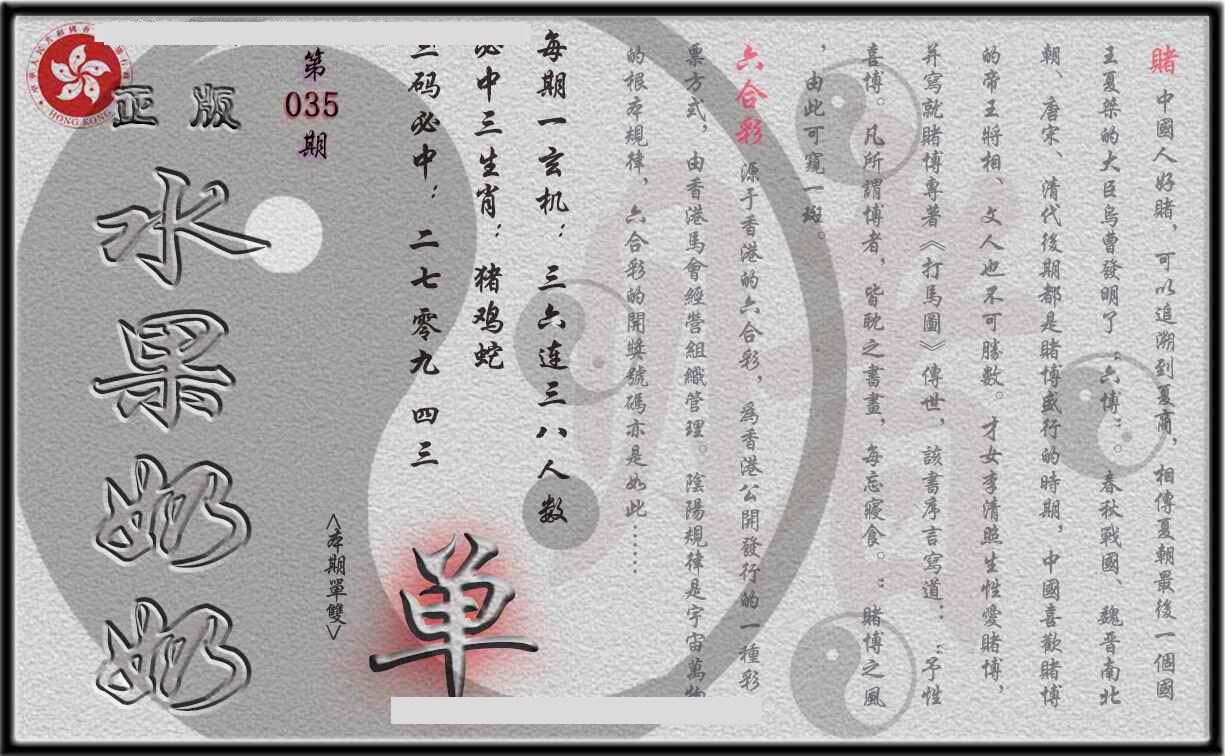 賭 中國人好賭，可以追溯到夏商，相傳夏朝最後一個國
王夏桀的大臣烏曹發明了“六博”。春秋戰國、魏晋南北
朝、唐宋、清代後期都是賭博盛行的時期，中國喜歡賭博
的帝王將相、文人也不可勝數。才女李清照生性愛賭博，
并寫就賭博專著《打馬圖》傳世，該書序言寫道：“予性
喜博。凡所謂博者，皆耽之晝書，每忘寢食。”賭博之風
，由此可窺一斑。
六合彩 源于香港的六合彩，為香港公開發行的一種彩
票方式，由香港馬會經營組織管理。陰陽規律是宇宙萬物
的根本規律，六合彩的開獎號碼亦是如此……
每期一玄机：三六连三八人数
必中三生肖：猪鸡蛇
三码必中：二七 零九 四三
单
<本期單雙>
第
035
期
正版
水果奶奶
HONG KONG